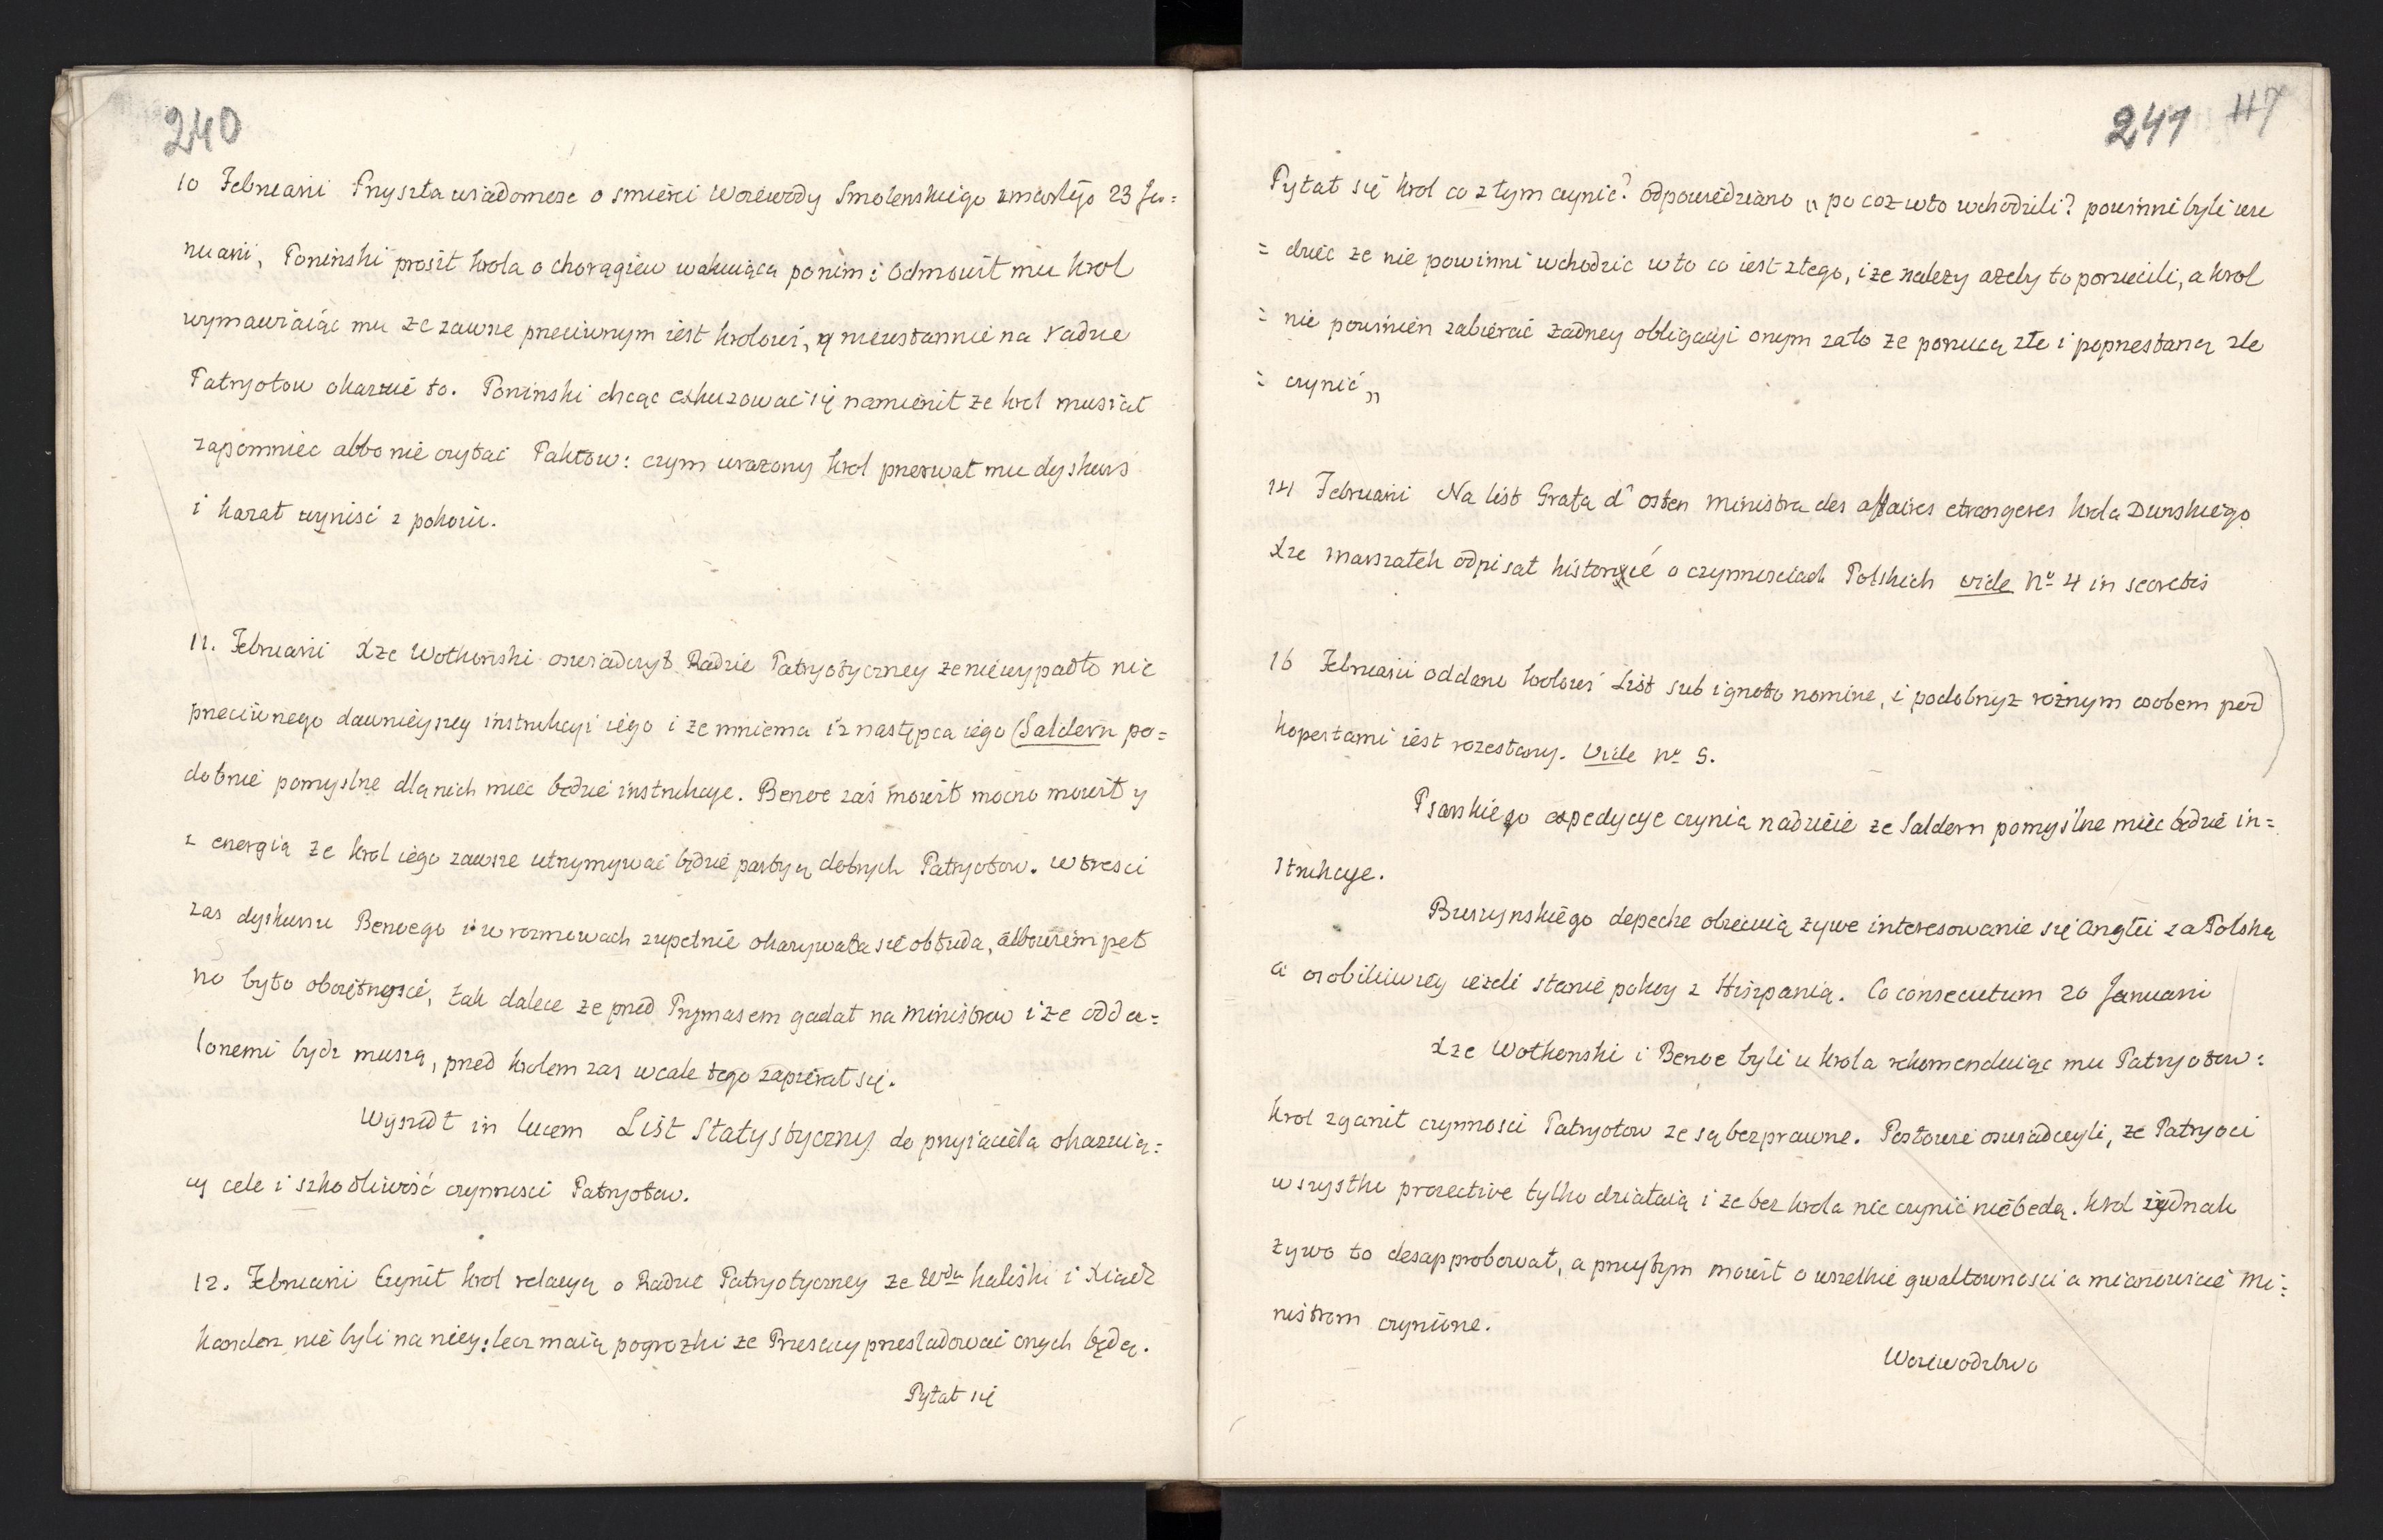 240
10 Februarii Przyszła wiadomosc o smierci Woiewody Smolenskiego zmarłego 23 Ja=
nuarii, Poninski prosił krola o chorągiew wakuiącą po nim i odmowił mu krol
wymawiaiąc mu ze zawsze przeciwnym iest krolowi, y nieustannie na radzie
Patryotow okazuie to. Poninski chcąc exkuzowac się namienił ze krol musiał
zapomniec albo nie czytać Paktow: czym urazony krol przerwał mu dyskurs
i kazał wynisc z pokoiu.
11. Februarii Xze Wołkonski oswiadczył Radzie Patryotyczney ze nie wypadło nic
przeciwnego dawnieyszey instrukcyi iego i ze mniema iz następca iego Saldern po=
dobnie pomyslne dla nich miec będzie instrukcye. Benoe zaś mowił mocno mowił y
z energią ze krol iego zawsze utrzymywać będzie partyą dobrych Patryotow. w tresci
zas dyskursu Benoego i w rozmowach zupełnie okazywała się obłuda, albowiem peł
no było oboiętnosci, tak dalece ze przed Prymasem gadał na ministrow i ze odda=
lonemi bydz muszą, przed krolem zas wcale tego zapierał się.
Wyszedł in lucem List Statystyczny do przyiaciela okazuią=
cy cele i szkodliwość czynnosci Patryotow.
12. Februarii Czynił krol relacyą o Radzie Patryotyczney ze Wda kaliski i Xiadz
kanclerz nie byli na niey: lecz maią pogrozki ze Prusacy przesladować onych będą.
Pytał się
241 117
Pytał się krol co z tym czynić? odpowiedziano „ po coz w to wchodzili? powinni byli wie
= dziec ze nie powinni wchodzic w to co iest złego, i ze nalezy azeby to porzucili, a krol
= nie powinien zabierać zadney obligacyi onym za to ze porzucą złe i poprzestaną zle
= czynić „
14 Februarii Na list Grafa d'osten ministra des affaires etrangeres krola Dunskiego
Xze marszałek odpisał historycznie o czynnosciach Polskich vide No 4 in secretis
16 Februarii oddano krolowi List sub ignoto nomine, i podobnyz roznym osobem pod
kopertami iest rozesłany. Vide No 5.
Psarskiego expedycye czynią nadzieie ze Saldern pomyślne miec będzie in=
strukcye.
Burzynskiego depeche obiecuią zywe interesowanie się Anglii za Polską
a osobliwiey iezeli stanie pokoy z Hiszpanią. Co consecutum 20 Januarii
Xze Wołkonski i Benoe byli u krola rekomenduiąc mu Patryotow:
krol zganił czynnosci Patryotow ze są bezprawne. Posłowie oswiadczyli, ze Patryoci
wszystko proiective tylko działaią i ze bez krola nic czynić nie będą. krol iednak
zywo to desapprobował, a przytym mowił o wszelkie gwałtownosci a mianowicie mi=
nistrom czynione.
Woiewodztwo